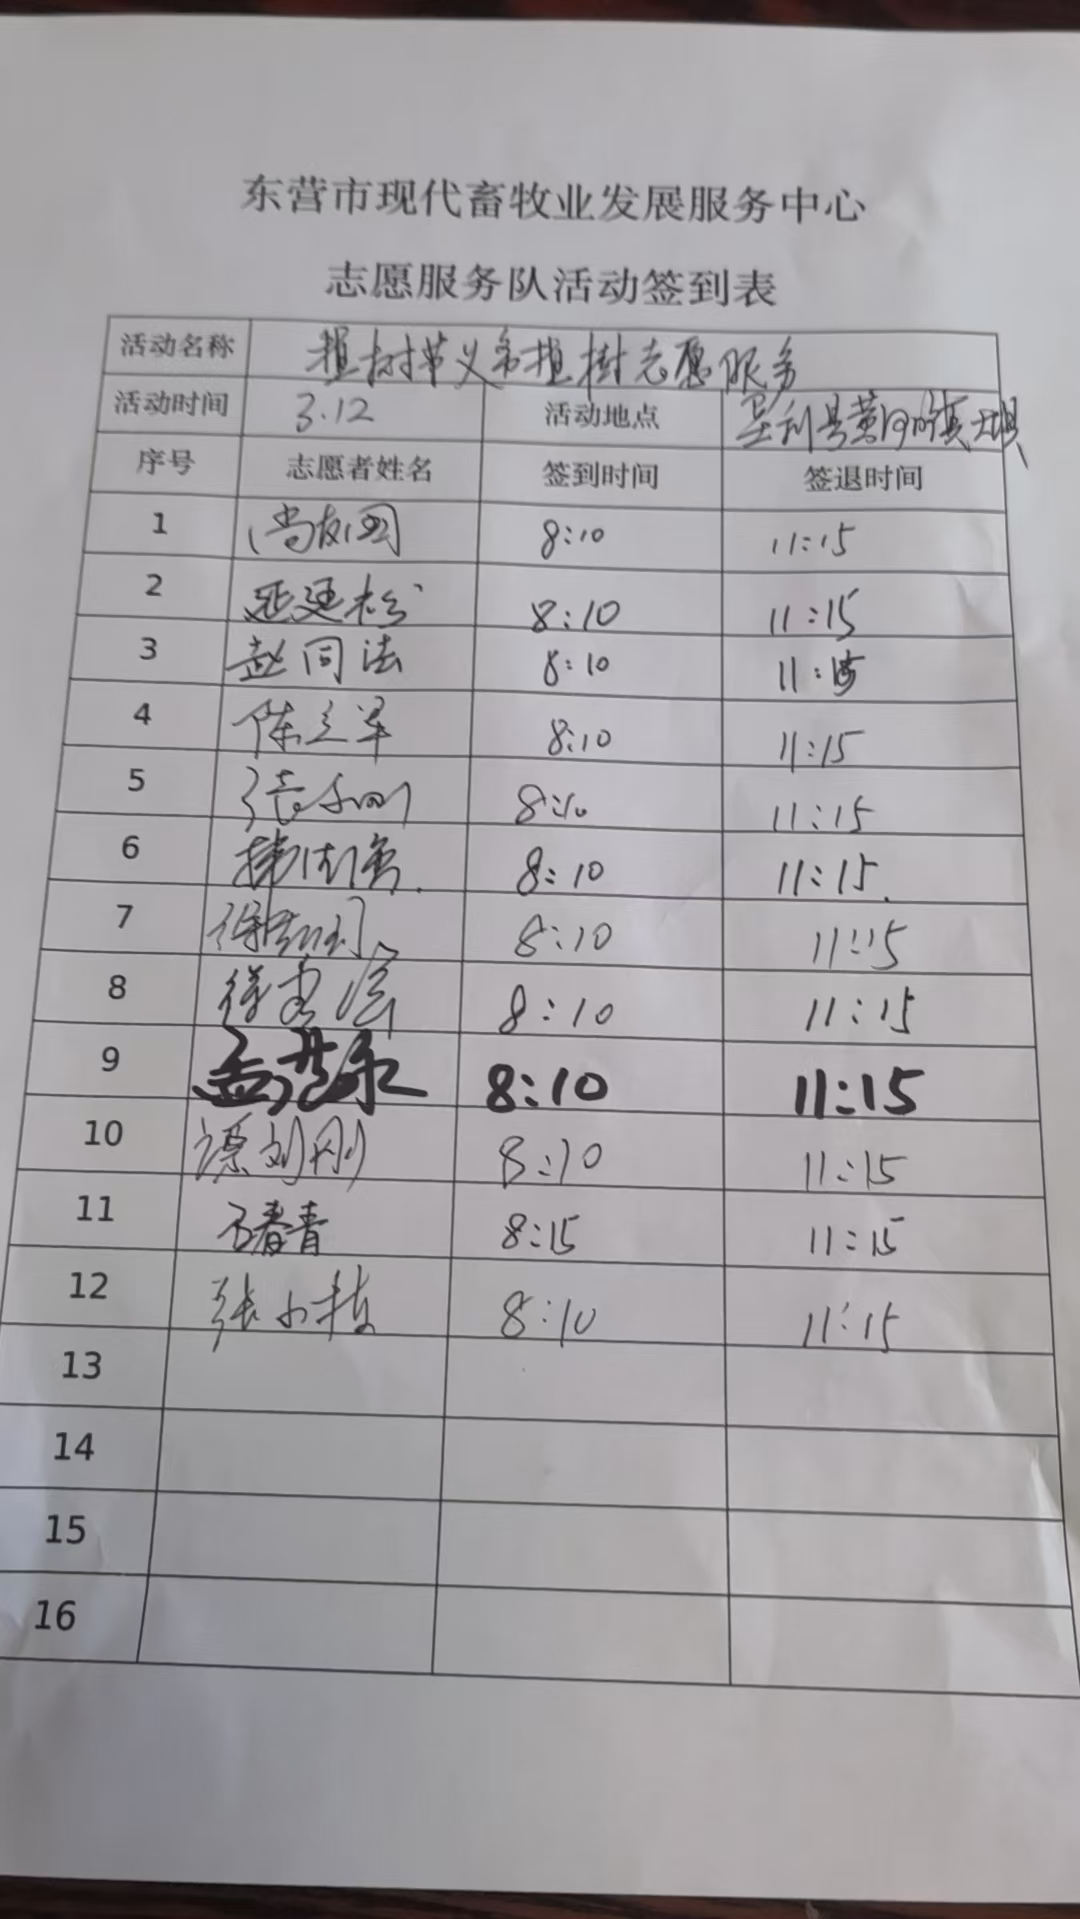 东营市现代畜牧业发展服务中心
志愿服务队活动签到表
活动名称 植树节义务植树志愿服务
活动时间 3.12 活动地点 垦利县黄河口镇
序号 志愿者姓名 签到时间 签退时间
1 尚友国 8:10 11:15
2 延廷松 8:10 11:15
3 赵同法 8:10 11:15
4 陈立军 8:10 11:15
5 8:10 11:15
6 8:10 11:15.
7 8:10 11:15
8 8:10 11:15
9 8:10 11:15
10 谭刘刚 8:10 11:15
11 石春青 8:15 11:15
12 张小栋 8:10 11:15
13
14
15
16